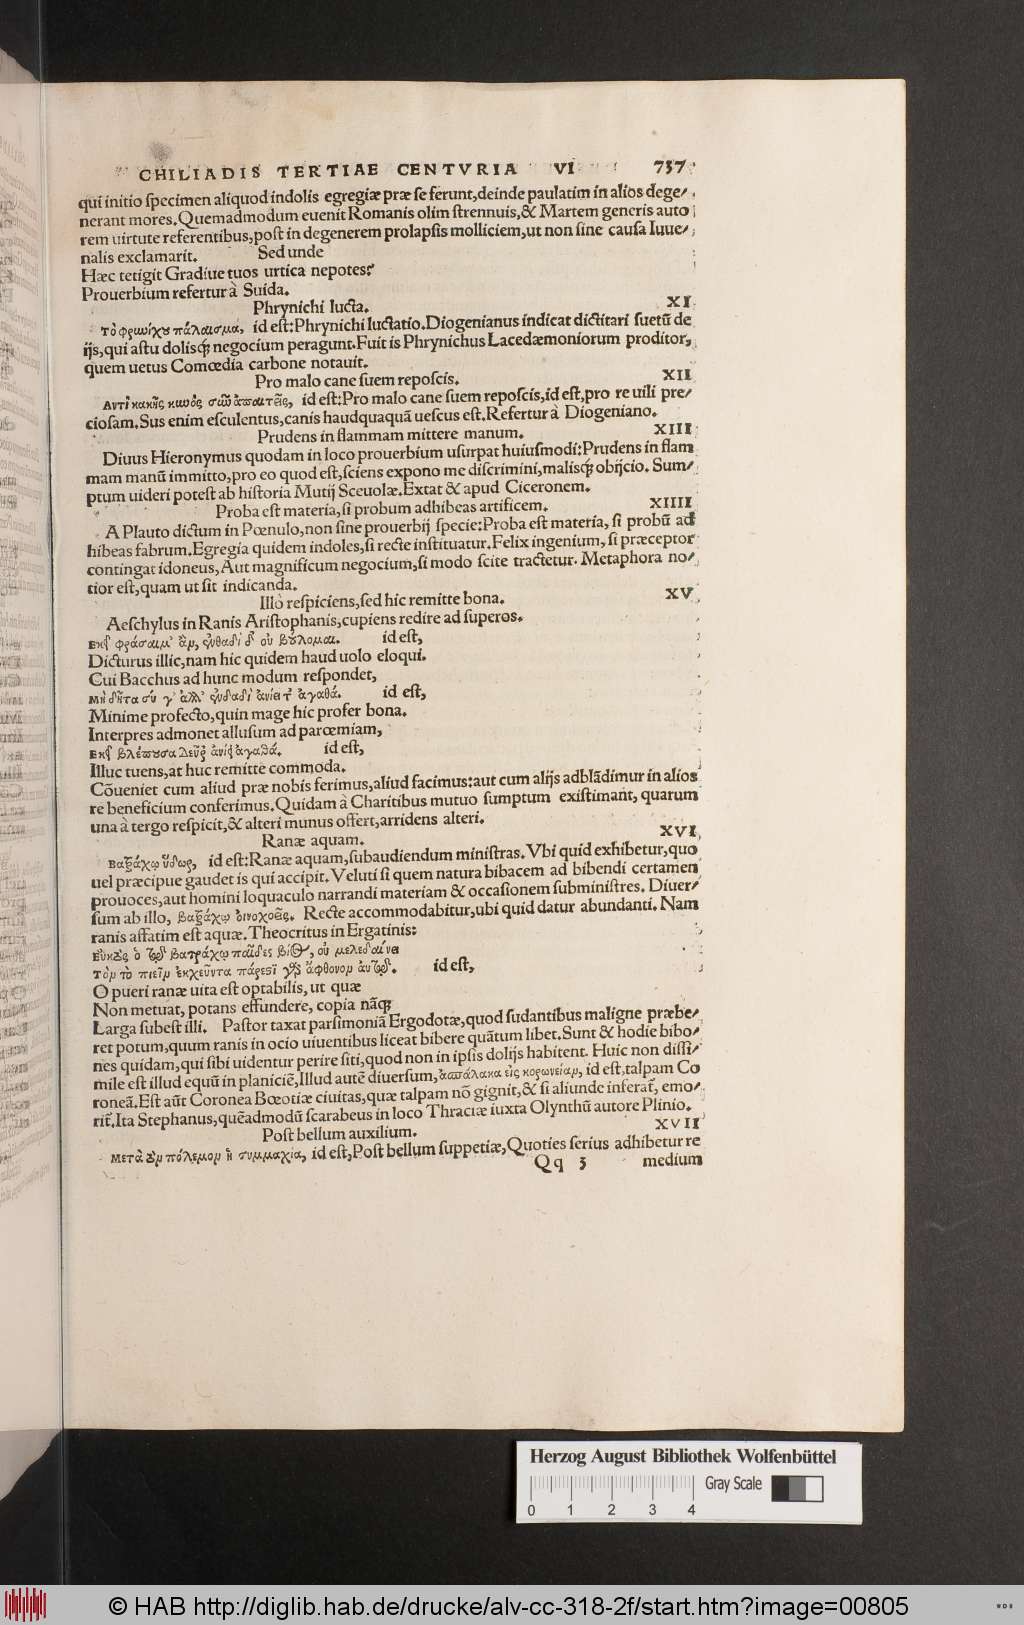 CHILIADIS TERTIAE CENTVRIA VI 737
qui initio specimen aliquod indolis egregiæ præ se ferunt, deinde paulatim in alios dege/
nerant mores. Quemadmodum euenit Romanis olim strennuis, & Martem generis auto
rem uirtute referentibus, post in degenerem prolapsis molliciem, ut non sine causa Iuue/
nalis exclamarit. Sed unde
Hæc tetigit Gradiue tuos urtica nepotes?
Prouerbium refertur à Suida.
Phrynichi lucta. XI
τὸ φρωίχου πάλαισμα, id est: Phrynichi luctatio. Diogenianus indicat dictitari suetũ de
ijs, qui astu dolisq́; negocium peragunt. Fuit is Phrynichus Lacedæmoniorum proditor,
quem uetus Comœdia carbone notauit.
Pro malo cane suem reposcis. XII
Αντὶ κακῆς κυνὸς σῦν ἀπαιτεῖς, id est: Pro malo cane suem reposcis, id est, pro re uili pre/
ciosam. Sus enim esculentus, canis haudquaquã uescus est. Refertur à Diogeniano.
Prudens in flammam mittere manum. XIII
Diuus Hieronymus quodam in loco prouerbium usurpat huiusmodi: Prudens in flam
mam manũ immitto, pro eo quod est, sciens expono me discrimini, malisq́; obijcio. Sum/
ptum uideri potest ab historia Mutij Sceuolæ. Extat & apud Ciceronem.
Proba est materia, si probum adhibeas artificem. XIIII
A Plauto dictum in Pœnulo, non sine prouerbij specie: Proba est materia, si probũ ad
hibeas fabrum. Egregia quidem indoles, si recte instituatur. Felix ingenium, si præceptor
contingat idoneus, Aut magnificum negocium, si modo scite tractetur. Metaphora no/
tior est, quam ut sit indicanda.
Illò respiciens, sed hic remitte bona. XV
Aeschylus in Ranis Aristophanis, cupiens redire ad superos.
Εκεῖ φράσαιμ' ἄν, ἐνθαδὶ δ' οὐ βούλομαι. id est,
Dicturus illic, nam hic quidem haud uolo eloqui.
Cui Bacchus ad hunc modum respondet,
Μὴ δῆτα σύ γ' ἀλλ' ἐνθαδὶ ἀνίει τ' ἀγαθά. id est,
Minime profecto, quin mage hic profer bona.
Interpres admonet allusum ad parœmiam,
Εκεῖ βλέπουσα δεῦρ' ἀνίει ἀγαθά. id est,
Illuc tuens, at huc remitte commoda.
Cõueniet cum aliud præ nobis ferimus, aliud facimus: aut cum alijs adblãdimur in alios
re beneficium conferimus. Quidam à Charitibus mutuo sumptum existimant, quarum
una à tergo respicit, & alteri munus offert, arridens alteri.
Ranæ aquam. XVI
Βατράχῳ ὕδωρ, id est: Ranæ aquam, subaudiendum ministras. Vbi quid exhibetur, quo
uel præcipue gaudet is qui accipit. Veluti si quem natura bibacem ad bibendi certamen
prouoces, aut homini loquaculo narrandi materiam & occasionem subministres. Diuer/
sum ab illo, βατράχῳ οἰνοχοεῖς. Recte accommodabitur, ubi quid datur abundanti. Nam
ranis affatim est aquæ. Theocritus in Ergatinis:
Εὐκτὸς ὁ τῶ βατράχω παῖδες βίος, οὐ μελεδαίνει
Τὸν τὸ πιεῖν ἐκχεῦντα πάρεστι γὰρ ἄφθονον αὐτῷ. id est,
O pueri ranæ uita est optabilis, ut quæ
Non metuat, potans effundere, copia nãq́;
Larga subest illi. Pastor taxat parsimoniã Ergodotæ, quod sudantibus maligne præbe/
ret potum, quum ranis in ocio uiuentibus liceat bibere quãtum libet. Sunt & hodie bibo/
nes quidam, qui sibi uidentur perire siti, quod non in ipsis dolijs habitent. Huic non dissi/
mile est illud equũ in planiciẽ, Illud autẽ diuersum, ἀσπάλακα εἰς κορωνείαν, id est, talpam Co
roneã. Est aũt Coronea Bœotiæ ciuitas, quæ talpam nõ gignit, & si aliunde inferat̃, emo/
rit̃. Ita Stephanus, quẽadmodũ scarabeus in loco Thraciæ iuxta Olynthũ autore Plinio.
Post bellum auxilium. XVII
Μετὰ τὸν πόλεμον ἡ συμμαχία, id est, Post bellum suppetiæ, Quoties serius adhibetur re
Qq 3 medium
Herzog August Bibliothek Wolfenbüttel
Gray Scale
0 1 2 3 4
© HAB http://diglib.hab.de/drucke/alv-cc-318-2f/start.htm?image=00805